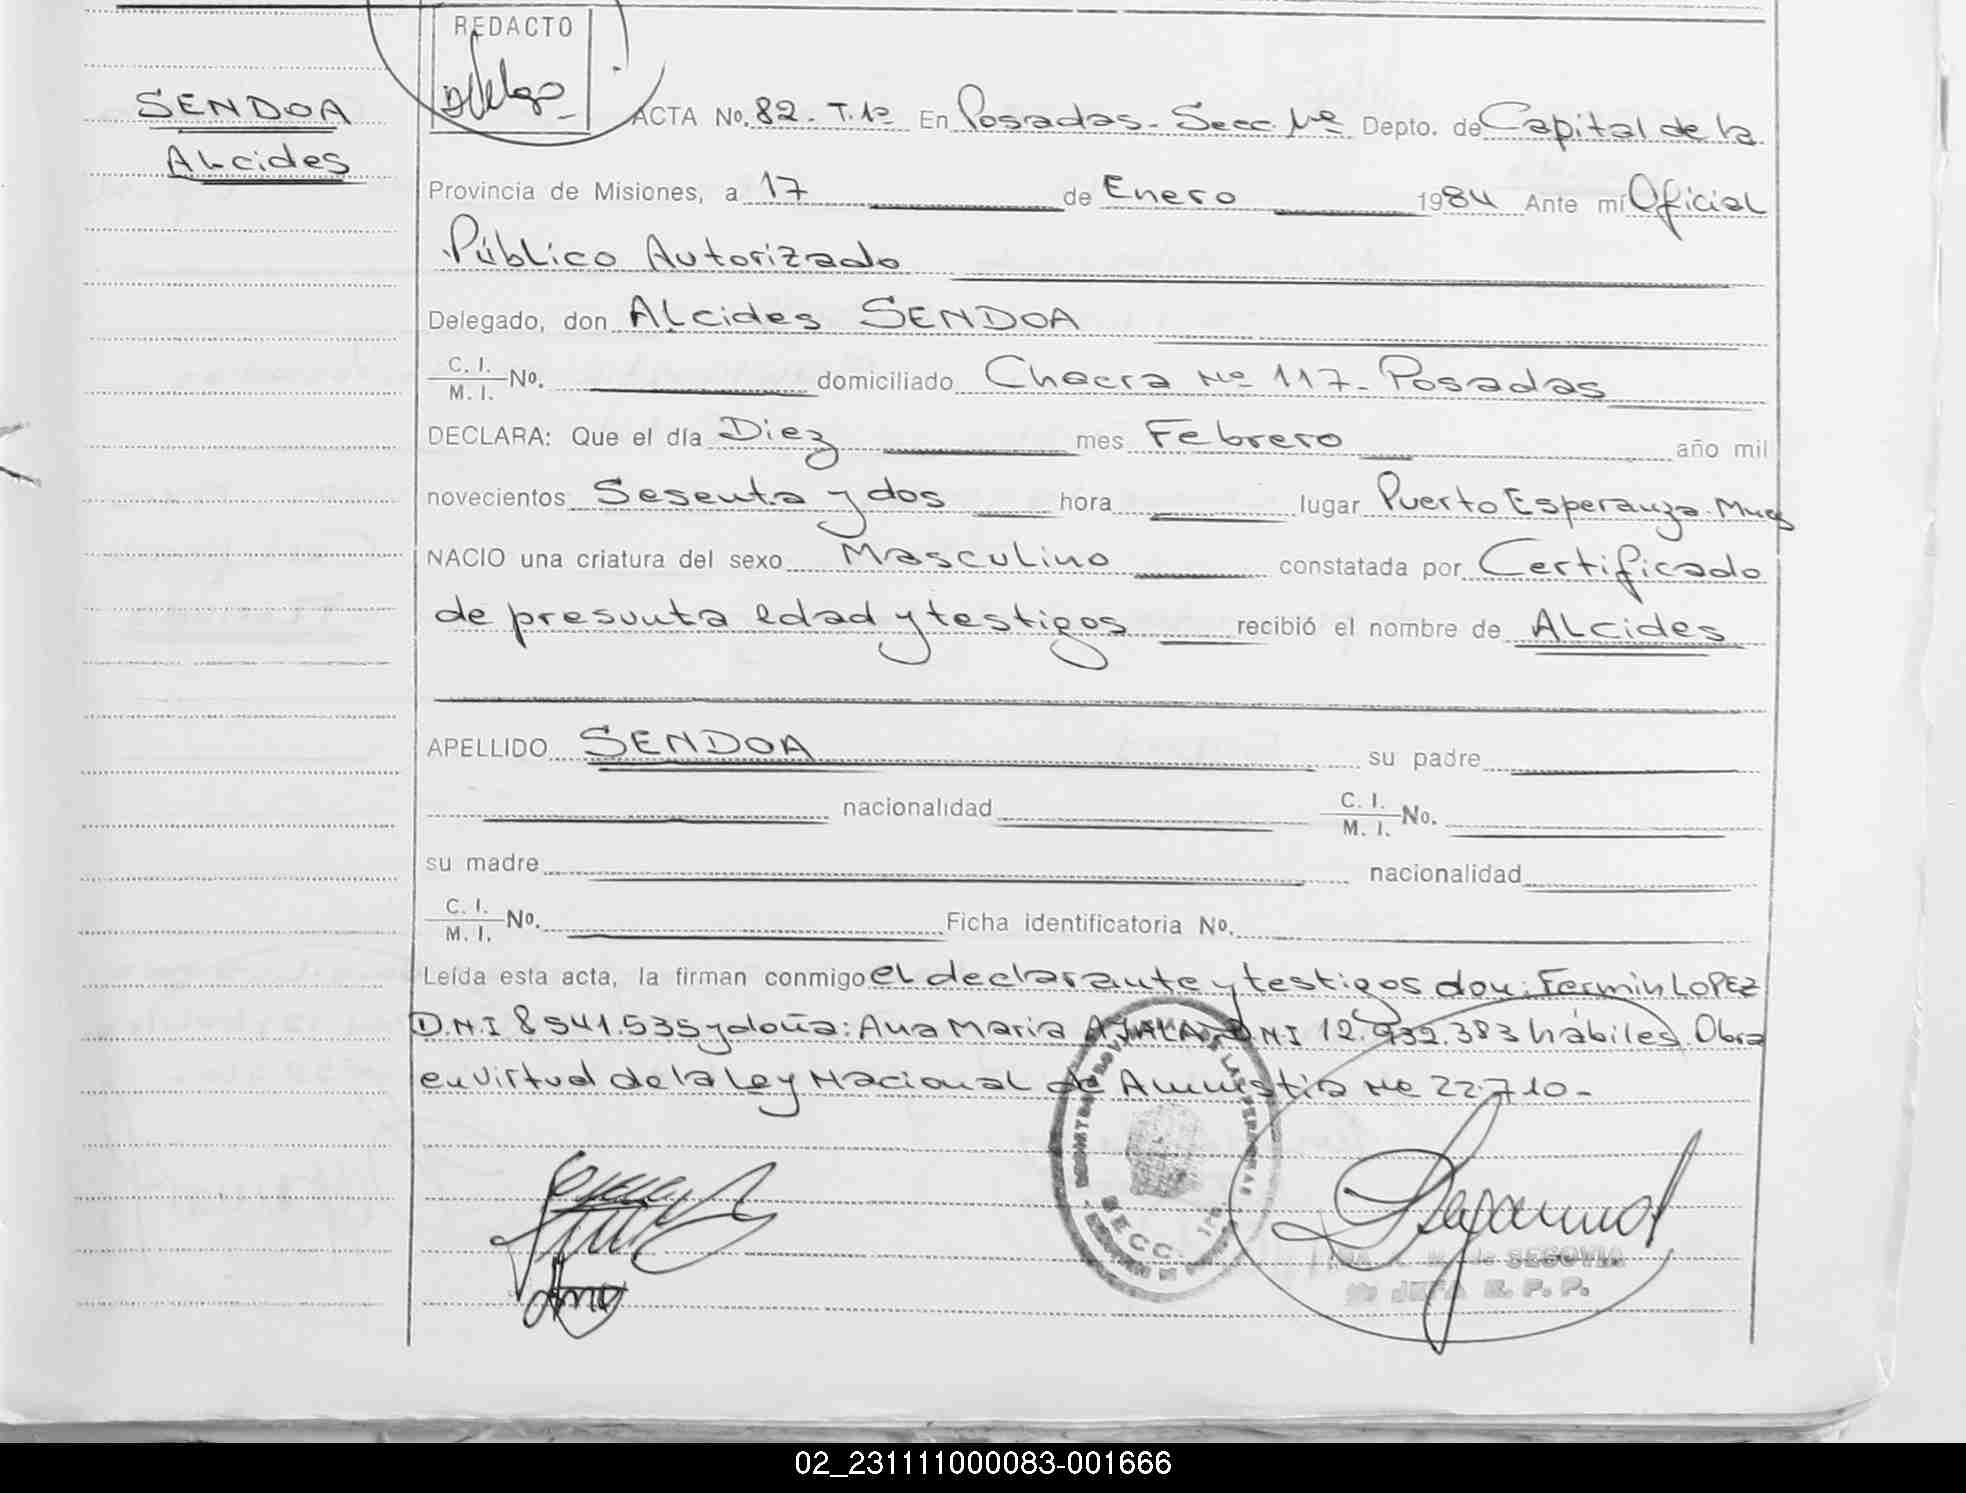 REDACTO
SENDOA
Alcides
ACTA No. 82. T. 1º En Posadas. Secc. 1º Depto. de Capital de la
Provincia de Misiones, a 17 de Enero 1984 Ante mí Oficial
Público Autorizado
Delegado, don Alcides SENDOA
C. I.
M. I. No. domiciliado Chacra Nº 117. Posadas
DECLARA: Que el día Diez mes Febrero año mil
novecientos Sesenta y dos hora lugar Puerto Esperanza. Mnes
NACIO una criatura del sexo Masculino constatada por Certificado
de presunta edad y testigos recibió el nombre de Alcides
APELLIDO SENDOA su padre
nacionalidad C. I.
M. I. No.
su madre nacionalidad
C. I.
M. I. No. Ficha identificatoria No.
Leída esta acta, la firman conmigo el declarante y testigos don: Fermin LOPEZ
D.N.I 8541.535 y doña: Ana Maria AYALA DNI 12.932.383 hábiles. Obra
en virtud de la Ley Nacional de Amnistia Nº 22.710.-
SECC. 1ra
de SEGOVIA
JEFA R. P. P.
02_231111000083-001666